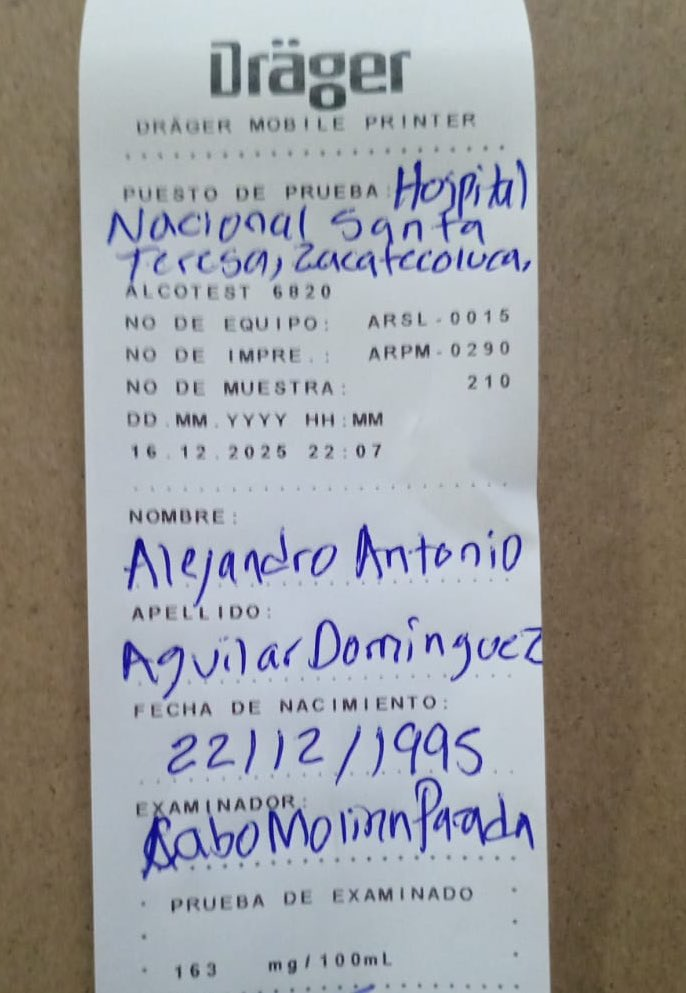 Dräger
DRÄGER MOBILE PRINTER
PUESTO DE PRUEBA: Hospital
Nacional Santa
Teresa, Zacatecoluca,
ALCOTEST 6820
NO DE EQUIPO: ARSL-0015
NO DE IMPRE.: ARPM-0290
NO DE MUESTRA: 210
DD.MM.YYYY HH:MM
16.12.2025 22:07
NOMBRE:
Alejandro Antonio
APELLIDO:
Aguilar Dominguez
FECHA DE NACIMIENTO:
22/12/1995
EXAMINADOR:
Cabo Molina Parada
PRUEBA DE EXAMINADO
163 mg/100mL